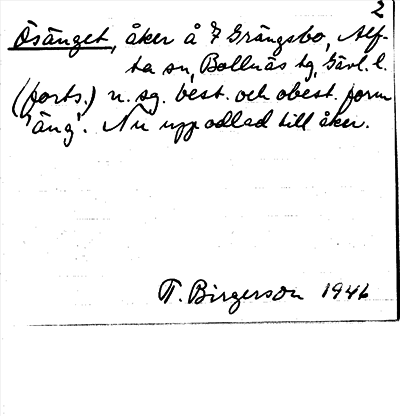 2
Ösänget, åker å 7 Grängsbo, Alf-
ta sn, Bollnäs tg, Gävl. l.
(forts.) n. sg. best. och obest. form
'äng'. Nu uppodlad till åker.
T. Birgerson 1946